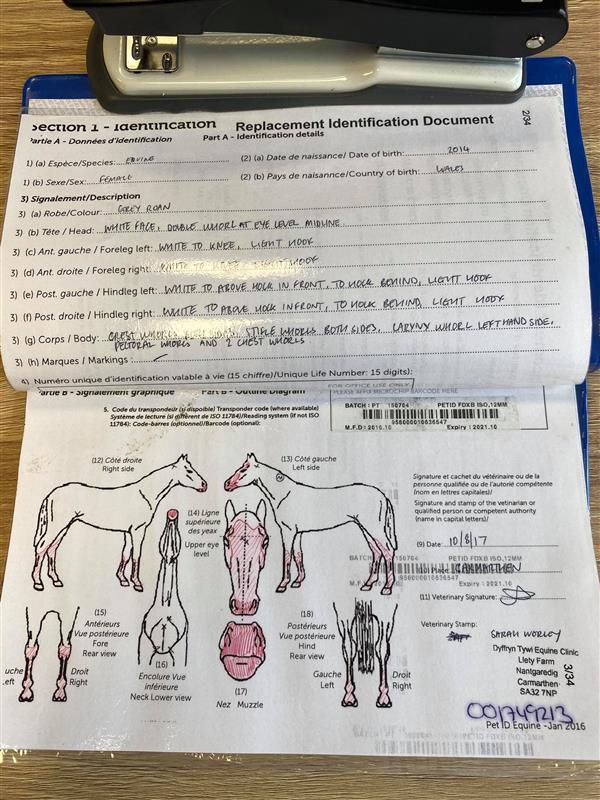 Section 1 - Identification
Replacement Identification Document
2/34
Partie A - Données d'identification
Part A - Identification details
1) (a) Espèce/Species: EQUINE
(2) (a) Date de naissance/ Date of birth: 2014
1) (b) Sexe/Sex: FEMALE
(2) (b) Pays de naisannce/Country of birth: WALES
3) Signalement/Description
3) (a) Robe/Colour: GREY ROAN
3) (b) Tête / Head: WHITE FACE, DOUBLE WHORL AT EYE LEVEL MIDLINE
3) (c) Ant. gauche / Foreleg left: WHITE TO KNEE, LIGHT HOOF
3) (d) Ant. droite / Foreleg right: WHITE TO KNEE LIGHT HOOF
3) (e) Post. gauche / Hindleg left: WHITE TO ABOVE HOCK IN FRONT, TO HOCK BEHIND, LIGHT HOOF
3) (f) Post. droite / Hindleg right: WHITE TO ABOVE HOCK IN FRONT, TO HOCK BEHIND, LIGHT HOOF
3) (g) Corps / Body: CREST WHORLS STIFLE WHORLS BOTH SIDES, LARYNX WHORL LEFT HAND SIDE,
PECTORAL WHORLS AND 2 CHEST WHORLS
3) (h) Marques / Markings:
4) Numéro unique d'identification valable à vie (15 chiffre)/Unique Life Number: 15 digits):
Partie B - Signalement graphique
Part B - Outline Diagram
FOR OFFICE USE ONLY
PLEASE AFFIX MICROCHIP BARCODE HERE
5. Code du transpondeur (si dispoible) Transponder code (where available)
Système de lecture (si différent de ISO 11784)/Reading system (if not ISO
11784): Code-barres (optionnel)/Barcode (optional):
BATCH : PT 150704 PETID FDXB ISO,12MM
956000010636547
M.F.D: 2016.10 Expiry : 2021.10
(12) Côté droite
Right side
(13) Côté gauche
Left side
(14) Ligne
supérieure
des yeax
Upper eye
level
Signature et cachet du vétérinaire ou de la
personne qualifiée ou de l'autorité compétente
(nom en lettres capitales)/
Signature and stamp of the vetinarian or
qualified person or competent authority
(name in capital letters)/
(9) Date: 10/8/17
BATCH 150704 PETID FDXB ISO,12MM
Place: CARMARTHEN
956000010636547
M.F.D: 2016.10 Expiry : 2021.10
(11) Veterinary Signature:
Veterinary Stamp:
SARAH WORLEY
Dyffryn Tywi Equine Clinic
Llety Farm
Nantgaredig
Carmarthen
SA32 7NP
(15)
Antérieurs
Vue postérieure
Fore
Rear view
uche
Left
Droit
Right
(16)
Encolure Vue
inférieure
Neck Lower view
(17)
Nez Muzzle
(18)
Postérieurs
Vue postérieure
Hind
Rear view
Gauche
Left
Droit
Right
3/34
001749213
Pet ID Equine -Jan 2016